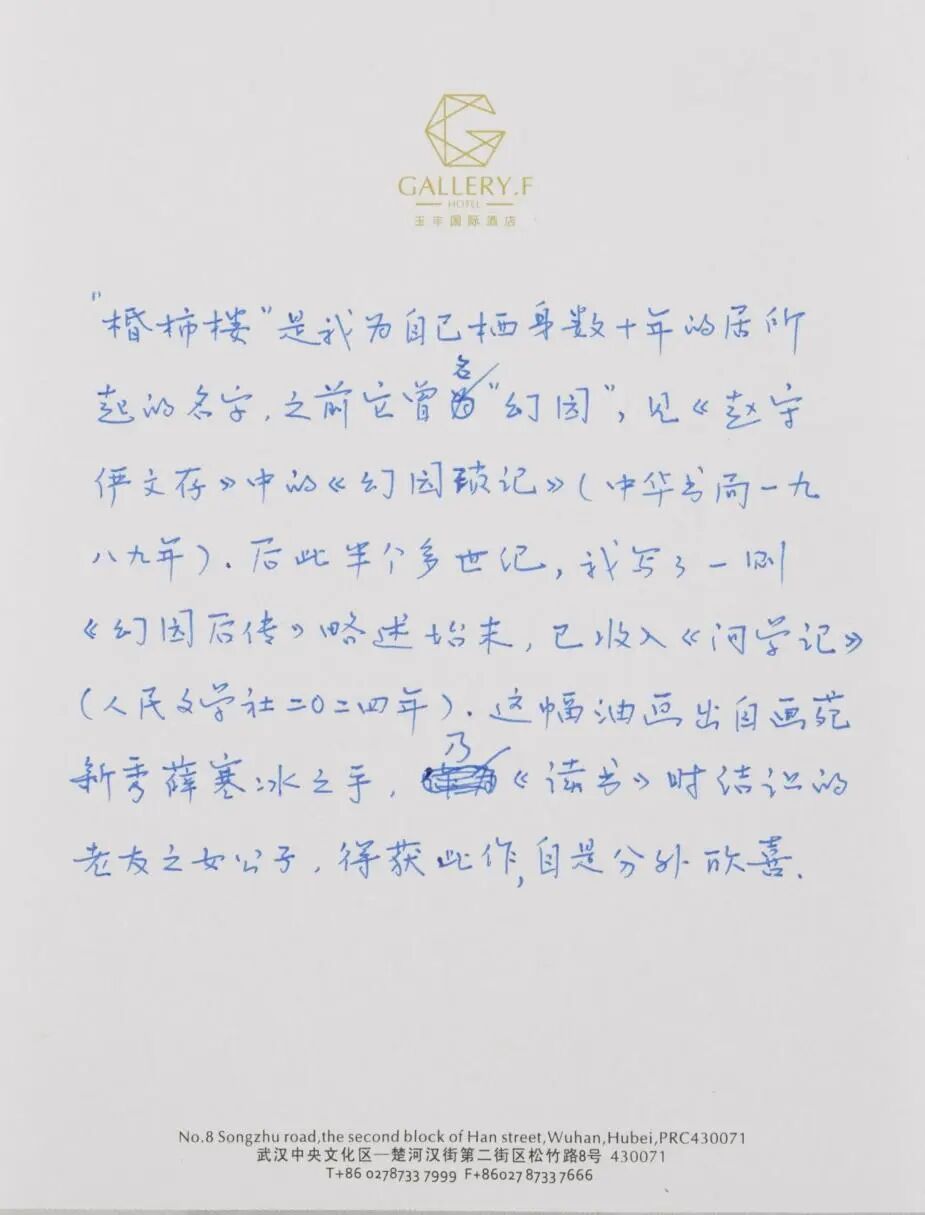 GALLERY.F
HOTEL
玉丰国际酒店
“棔柿楼”是我为自己栖身数十年的居所
起的名字，之前它曾名“幻园”，见《赵守
俨文存》中的《幻园琐记》（中华书局一九
八九年）.后此半个多世纪，我写了一则
《幻园后传》略述始末，已收入《问学记》
（人民文学社二〇二四年）.这幅油画出自画苑
新秀薛寒冰之手，乃《读书》时结识的
老友之女公子，得获此作，自是分外欣喜.
No.8 Songzhu road,the second block of Han street,Wuhan,Hubei,PRC430071
武汉中央文化区—楚河汉街第二街区松竹路8号 430071
T+86 0278733 7999 F+86027 8733 7666